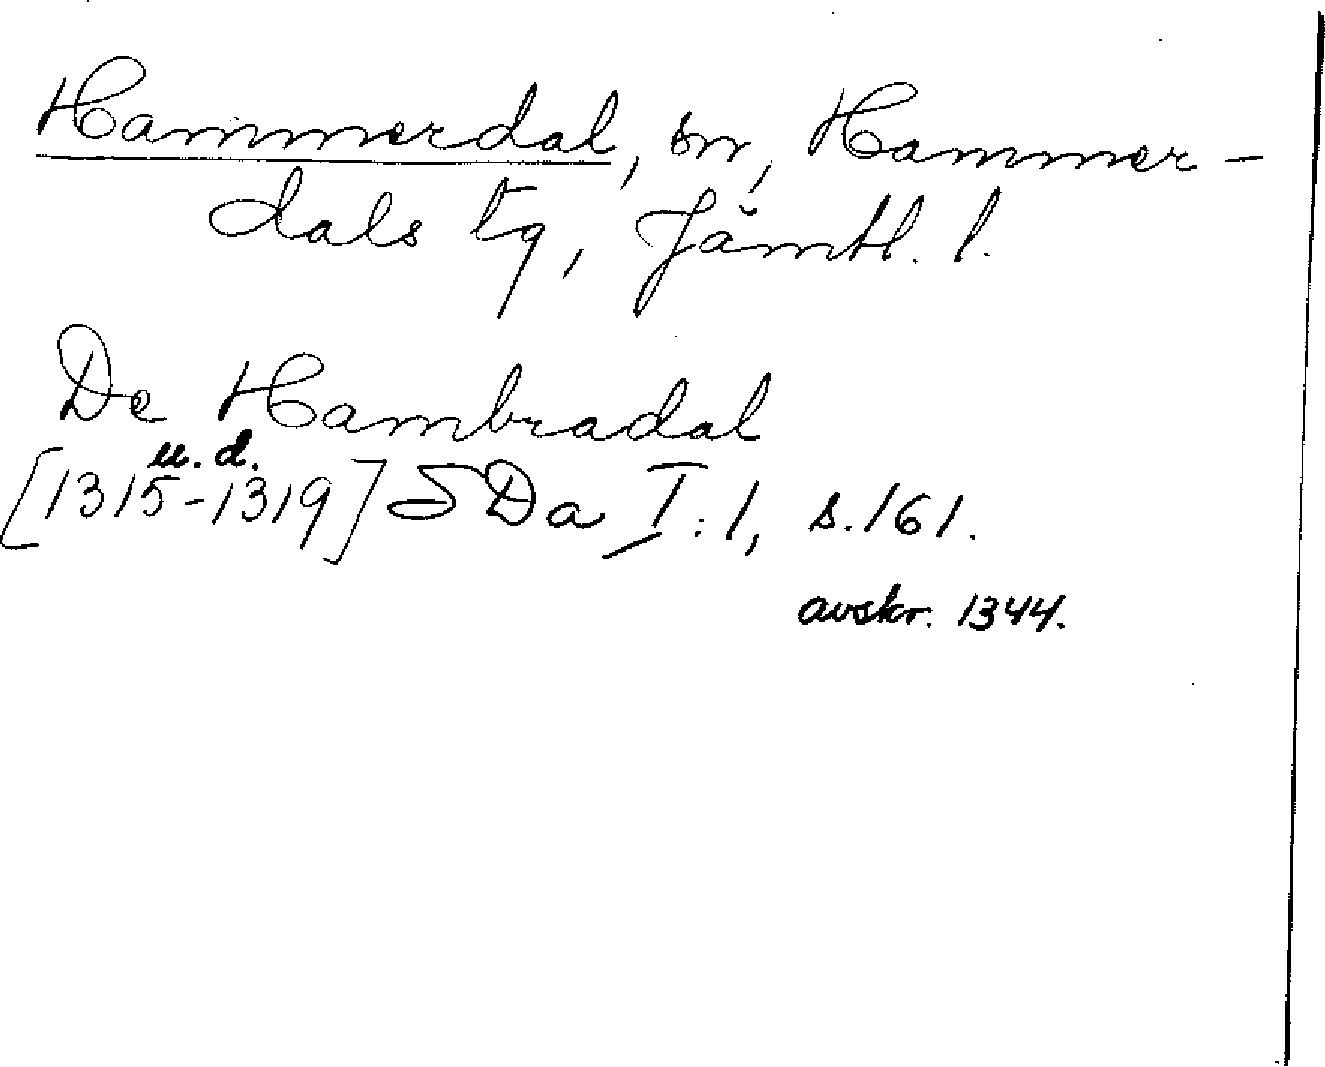 Hammerdal, sn, Hammer-
dals tg, Jämtl. l.
De Hambradal
u.d.
[1315-1319] SDa I:1, s.161.
avskr. 1344.